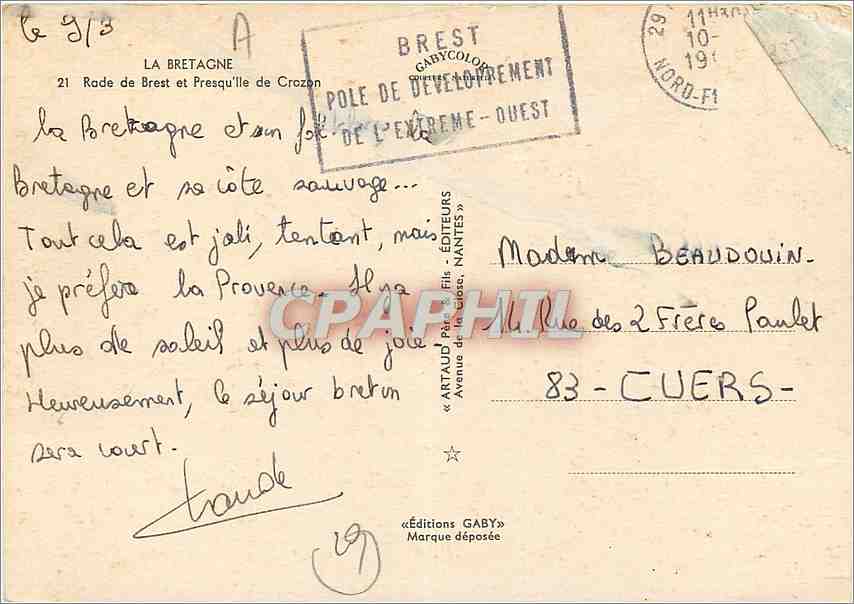 le 9/3
A
LA BRETAGNE
21 Rade de Brest et Presqu'Ile de Crozon
GABYCOLOR
BREST
POLE DE DÉVELOPPEMENT
DE L'EXTRÊME-OUEST
29
11H
10-
19
NORD-FI
la Bretagne et son la
Bretagne et sa côte sauvage...
Tout cela est joli, tentant, mais
je préfère la Provence. Il y a
plus de soleil et plus de joie-
Heureusement, le séjour breton
sera court.
« ARTAUD Père & Fils - ÉDITEURS
Avenue de la Close, NANTES »
Madame BEAUDOUIN.
14 Rue des 2 Frères Paulet
83 - CUERS -
CPAPHIL
«Éditions GABY»
Marque déposée
29